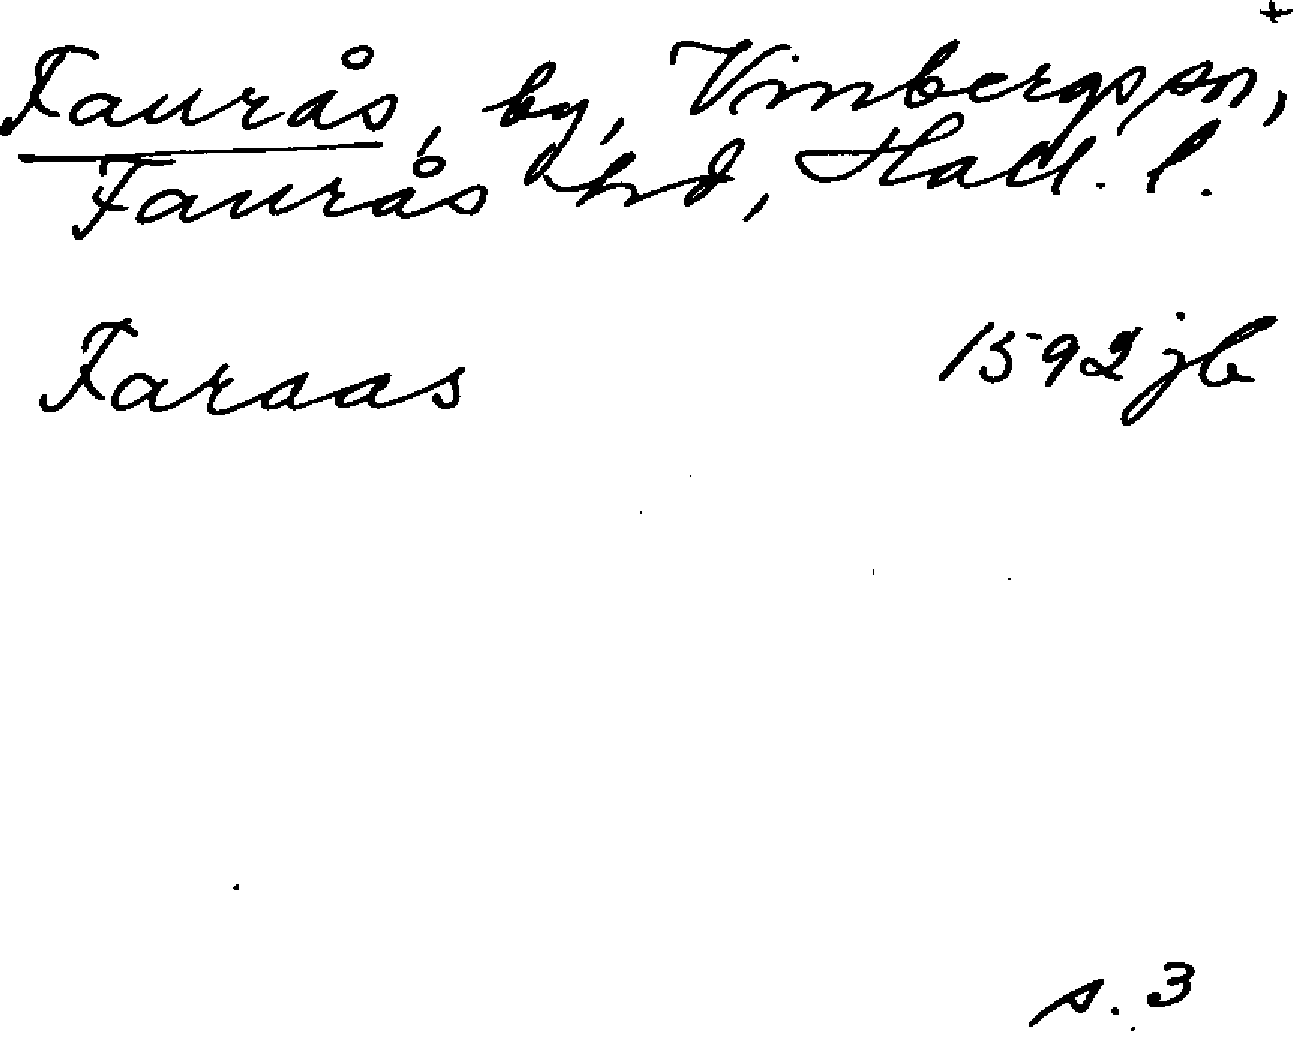 +
Faurås, by, Vinbergs sn,
Faurås hd, Hall. l.
Faraas 1592 jb
s. 3